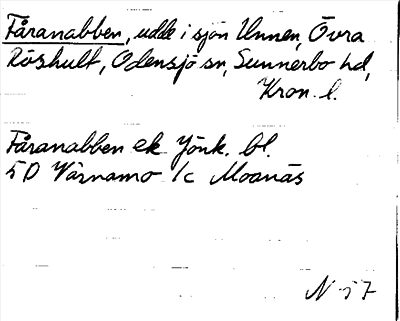 Fåranabben, udde i sjön Unnen, Övra
Röshult, Odensjö sn, Sunnerbo hd,
Kron. l.
Fåranabben ek Jönk. bl.
5D Värnamo 1c Moanäs
N 57